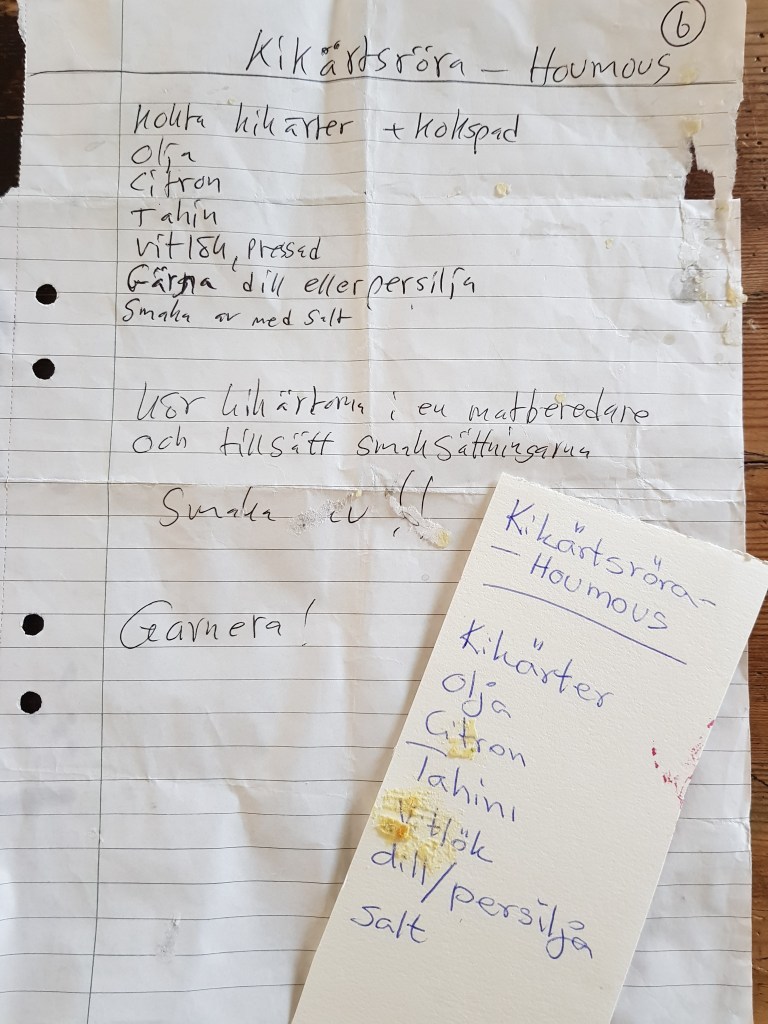 6
Kikärtsröra – Houmous
Kokta kikärter + kokspad
Olja
Citron
Tahin
Vitlök, pressad
Gärna dill eller persilja
Smaka av med salt
Kör kikärtorna i en matberedare
och tillsätt smaksättningarna
Smaka av !!
Garnera !
Kikärtsröra–
– Houmous
Kikärter
Olja
Citron
Tahini
Vitlök
dill/persilja
Salt